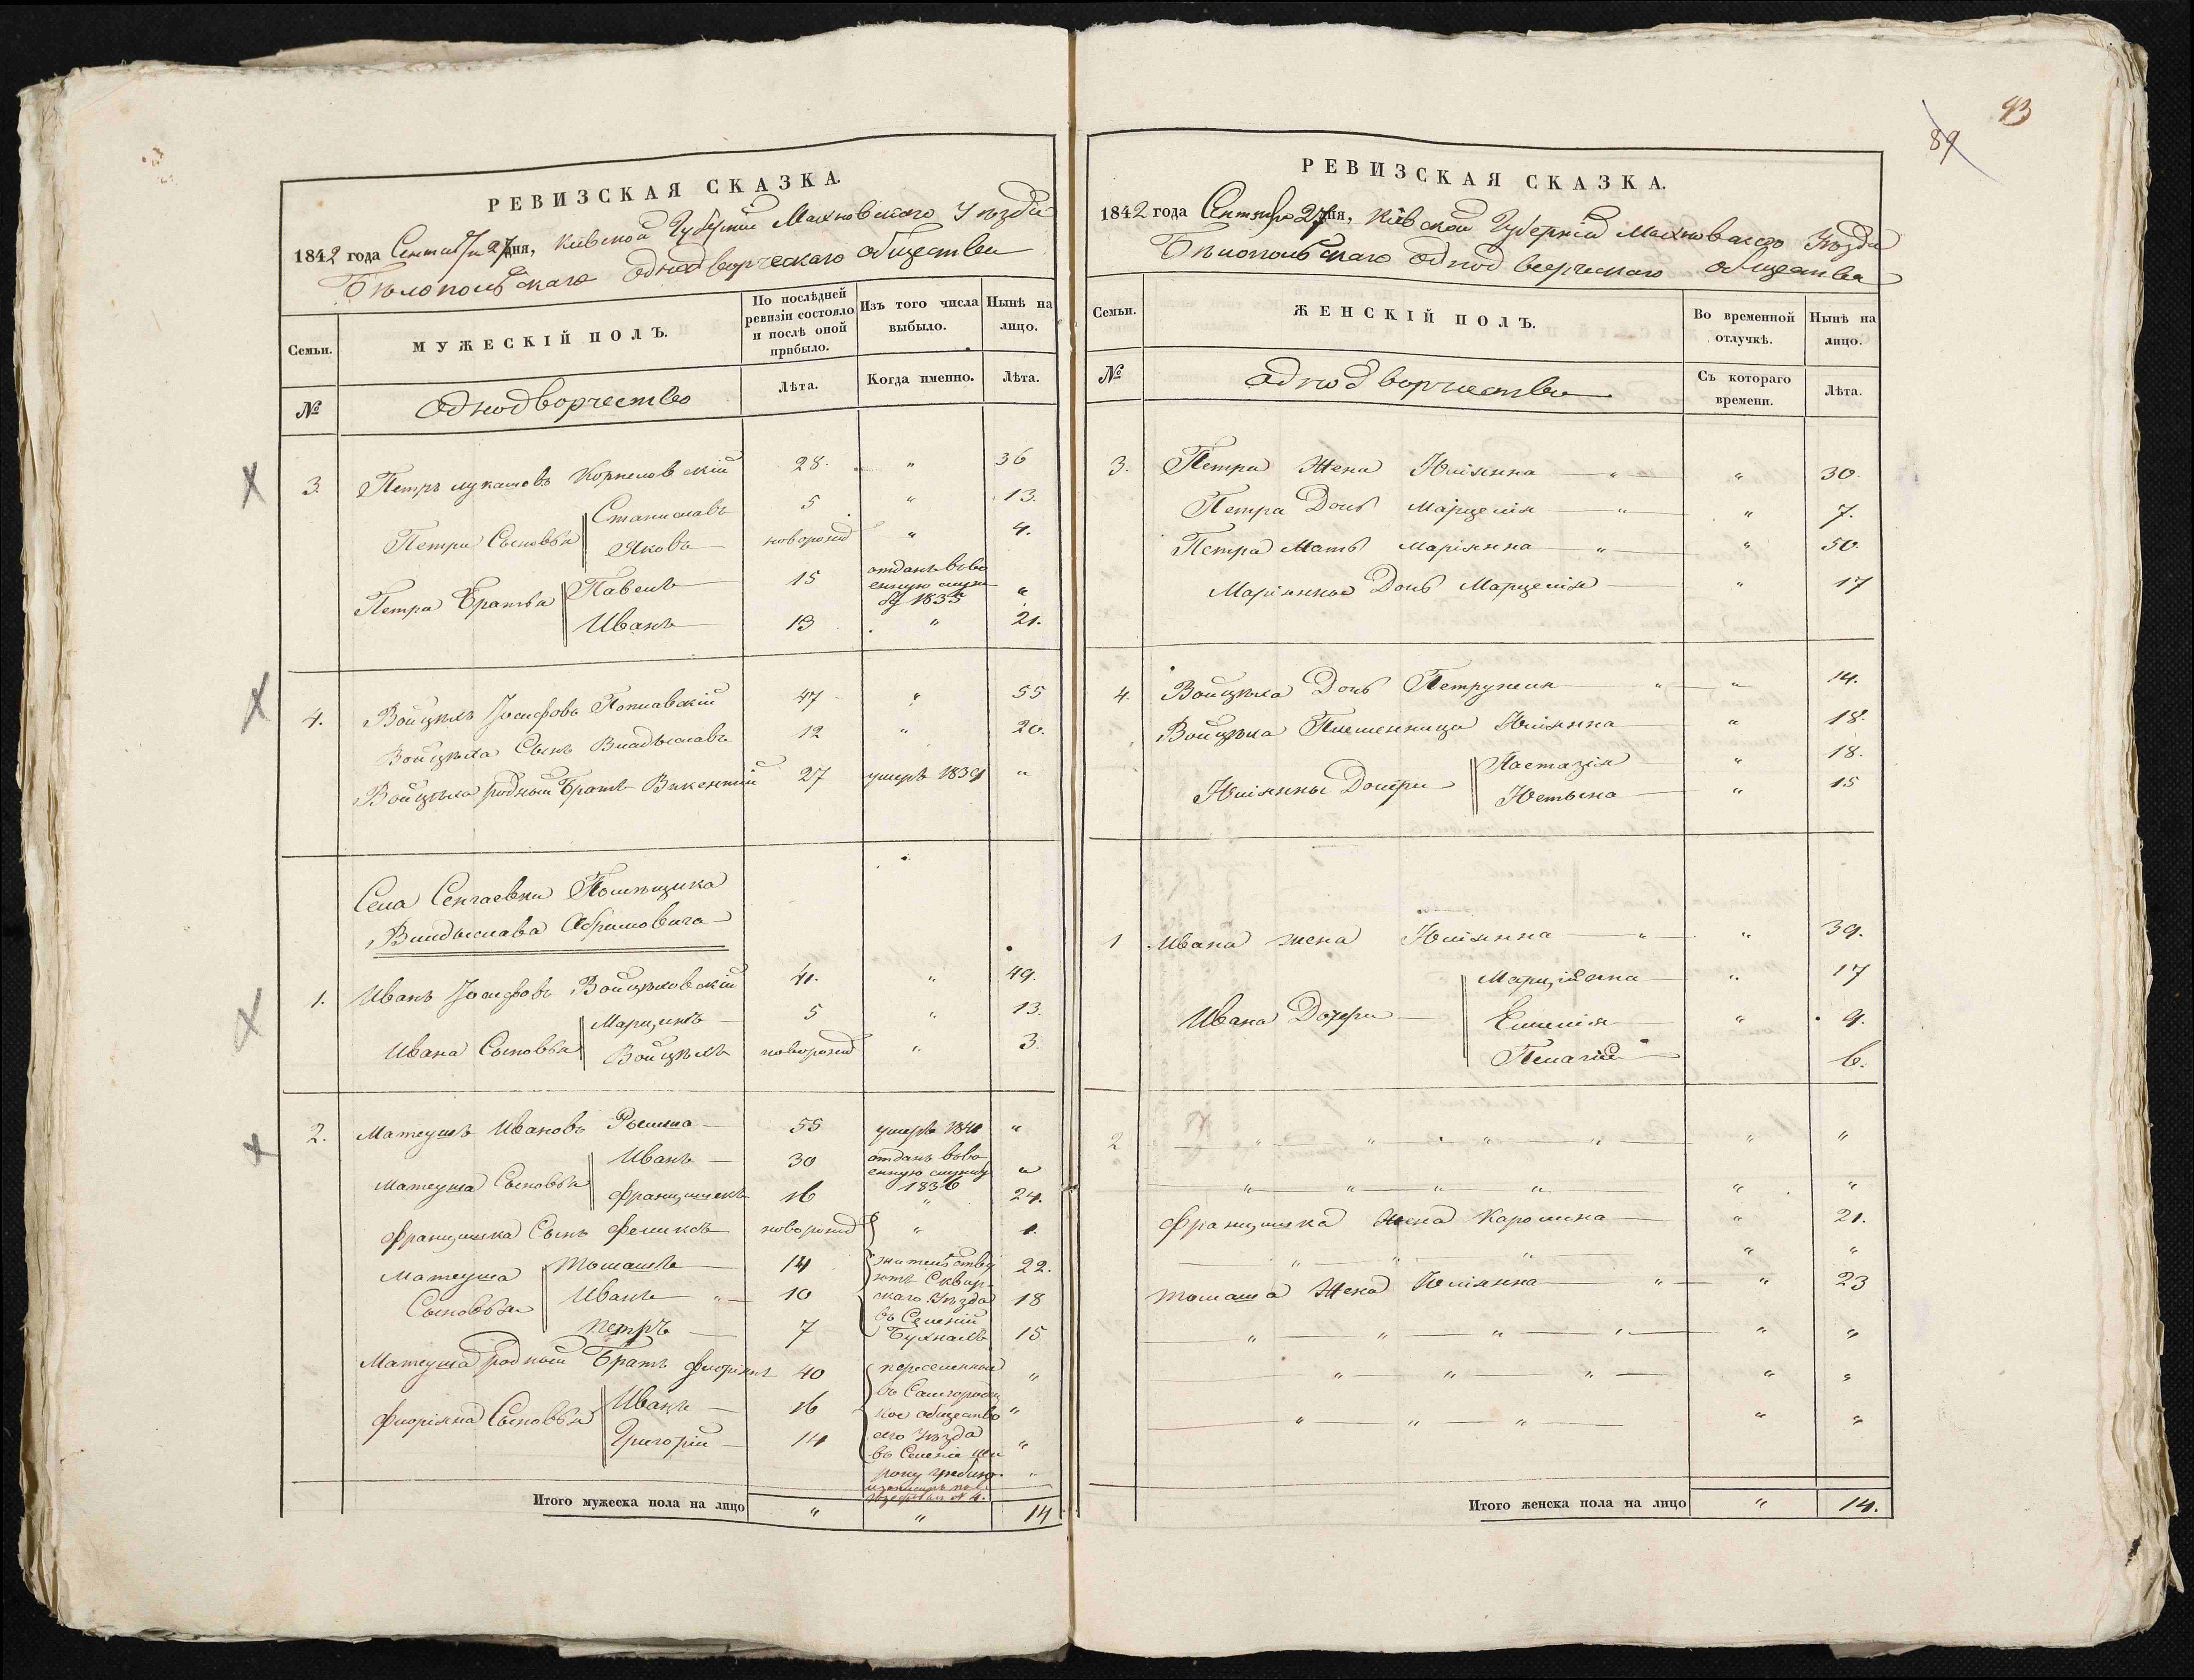 93
89
РЕВИЗСКАЯ СКАЗКА.
1842 года Сентября 27 дня, Кіевской Губерніи Махновскаго Уѣзда
Бѣлопольскаго однодворческаго общества
Семьи.
МУЖЕСКІЙ ПОЛЪ.
По послѣдней ревизіи состояло и послѣ оной прибыло.
Изъ того числа выбыло.
Нынѣ на лицо.
№
Однодворчество
Лѣта.
Когда именно.
Лѣта.
3. Петръ Лукашовъ Корнеловскій 28. " 36
Петра Сыновья Станиславъ 5 " 13.
Яковъ новорожд " 4.
Петра Братья Павелъ 15 отданъ въ военную служ 1835 "
Иванъ 13 " 21.
4. Войцѣхъ Іосифовъ Поплавскій 47 " 55
Войцѣха Сынъ Владыславъ 12 " 20.
Войцѣха родный Братъ Викентій 27 умеръ 1839 "
Села Сенгаевки Помѣщика
Владыслава Абрамовича
1. Иванъ Іосифовъ Войцѣховскій 41. " 49.
Ивана Сыновья Марцинъ 5 " 13.
Войцѣхъ новорожд " 3.
2. Матеушъ Ивановъ 55 умеръ 1840 "
Матеуша Сыновья Иванъ 30 отданъ въ военную службу 1836 "
Францишекъ 16 " 24.
Францишка Сынъ Феликсъ новорожд " 1.
Матеуша Сыновья Томашъ 14 жительствуютъ Сквирскаго Уѣзда въ Селеніи 22.
Иванъ 10 18
Петръ 7 15
Матеуша родный Братъ Флоріянъ 40 переселенны въ общество сего Уѣзда въ Селеніе "
Флоріяна Сыновья Иванъ 16 "
Григорій 14 "
Итого мужеска пола на лицо " " 14
РЕВИЗСКАЯ СКАЗКА.
1842 года Сентября 27 дня, Кіевской Губерніи Махновскаго Уѣзда
Бѣлопольскаго однодворческаго общества
Семьи.
ЖЕНСКІЙ ПОЛЪ.
Во временной отлучкѣ.
Нынѣ на лицо.
№
Однодворчество
Съ котораго времени.
Лѣта.
3. Петра Жена Юліянна " " 30.
Петра Дочь Марцелія " " 7.
Петра Мать Маріянна " " 50.
Маріянны Дочь Марцелія " 17
4. Войцѣха Дочь Петрунеля " " 14.
Войцѣха Племенница Юліянна " 18.
Юліянны Дочери Настазія " 18.
Юстына " 15
1 Ивана жена Юліянна " " 39.
Ивана Дочери Марціянна " 17
Емилія " 9.
Пелагія 6.
2 " " " " " "
" " " " " "
Францишка Жена Каролина " 21.
" " " "
Томаша Жена Юліянна " " 23
" " " " " "
" " " " "
" " " " "
Итого женска пола на лицо " 14.